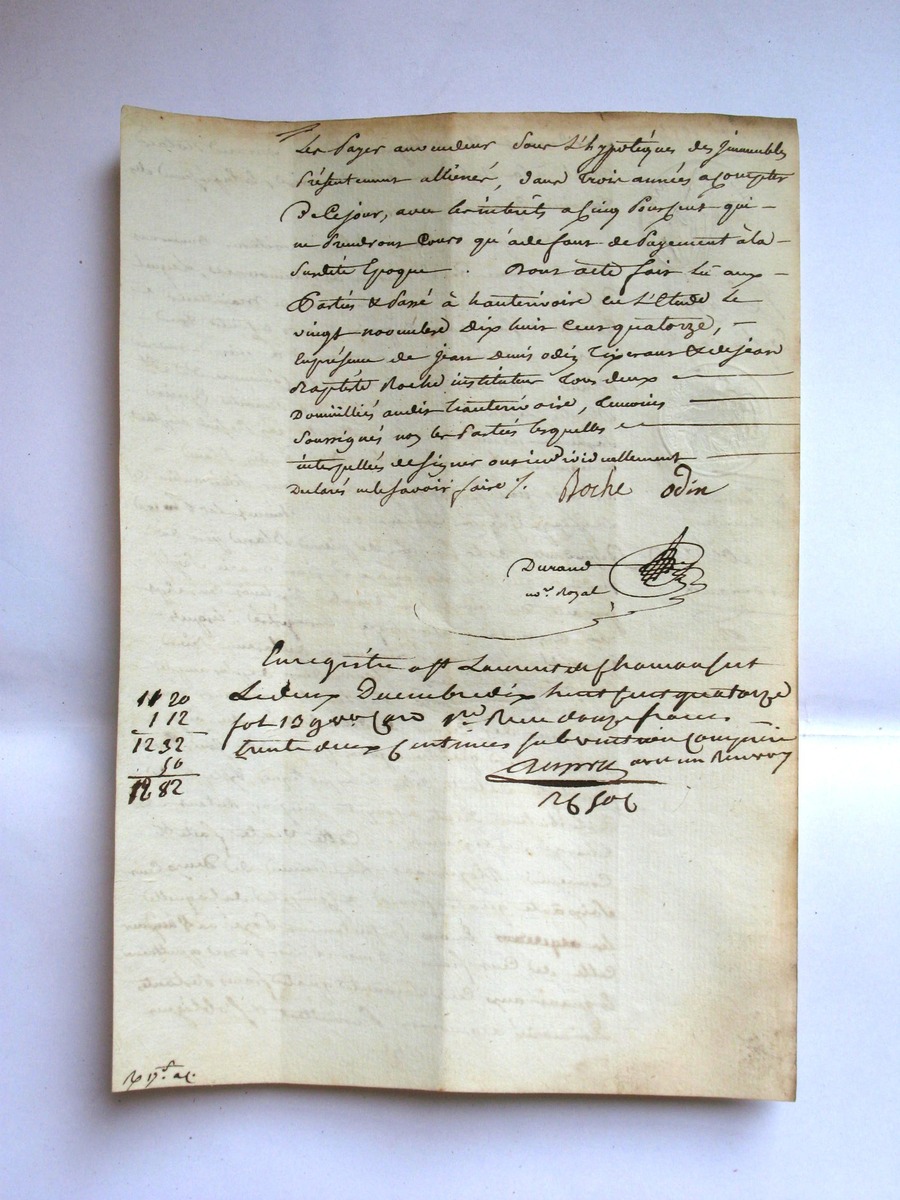 Les Payer au vendeur Sous L'hyppotéques des jmmeubles
Présentement alliénés, dans trois années a Compter
De Ce jour, avec les intérêts a Cinq Pour Cent qui -
ne Prendront Cours qu'a defaut de Payement à la -
Susdite Epoque . Dont acte fait lu aux -
Parties & Passé à hauterivoire en L'Etude le
vingt novembre dix huit Cent quatorze, -
En présence de jean denis odin Tisserant & de jean
Baptiste Roche instituteur tous deux
Domiciliés audit hauterivoire, temoins
Soussignés non les Parties lesquelles
interpellées de Signer ont individuellement
Declarés ne le Savoir faire %. Roche odin
Durand
no.re Royal
Enregistré a St Laurent de Chamousset
Le deux Decembre dix huit Cent quatorze
fol 13 Reçu douze francs
trente deux Centimes Subvention Comprise
avec un Renvoy
11 20
1 12
12 32
50
12 82